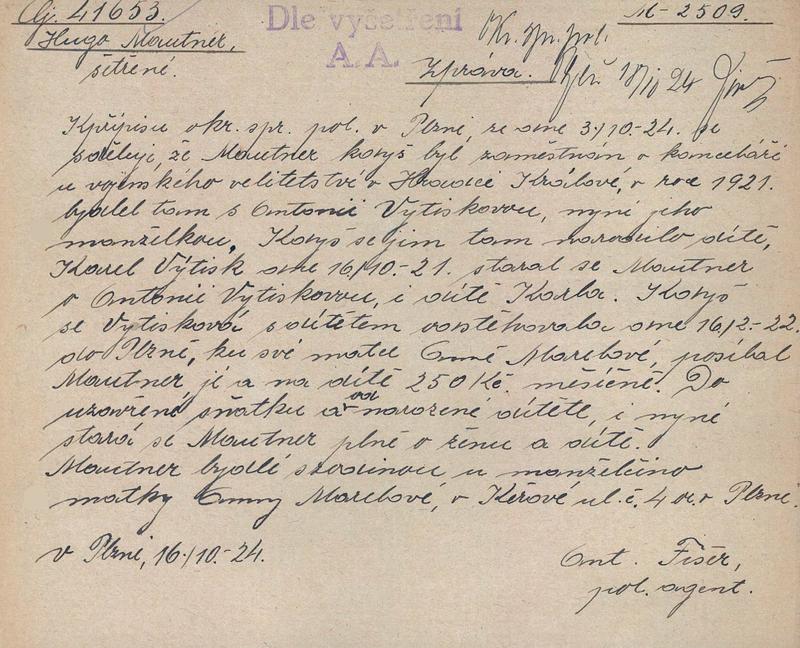 Čj. 41653.
M - 2509.
Dle vyšetření
A. A.
Hugo Mautner,
šetření.
Okr. spr. pol.
Zpráva.
18/10 24
K přípisu okr. spr. pol. v Plzni, ze dne 3/10.-24. se
sděluji, že Mautner když byl zaměstnán v kanceláři
u vojenského velitelství v Hradci Králové, v roce 1921.
bydlel tam s Antonii Vytiskovou, nyní jeho
manželkou. Když se jim tam narodilo dítě,
Karel Výtisk dne 16/10.-21. staral se Mautner
o Antonii Vytiskovou, i dítě Karla. Když
se Vytisková s dítětem odstěhovala dne 16/2.-22.
do Plzně, ku své matce Anně Marelové, posílal
Mautner jí a na dítě 250 Kč. měsíčně. Do
uzavření sňatku a od narození dítěte, i nyní
stará se Mautner plně o ženu a dítě.
Mautner bydlí s rodinou u manželčino
matky Anny Marelové, v ul. č. 4 v Plzni.
V Plzni, 16/10.-24.
Ant. Fišer,
pol. agent.